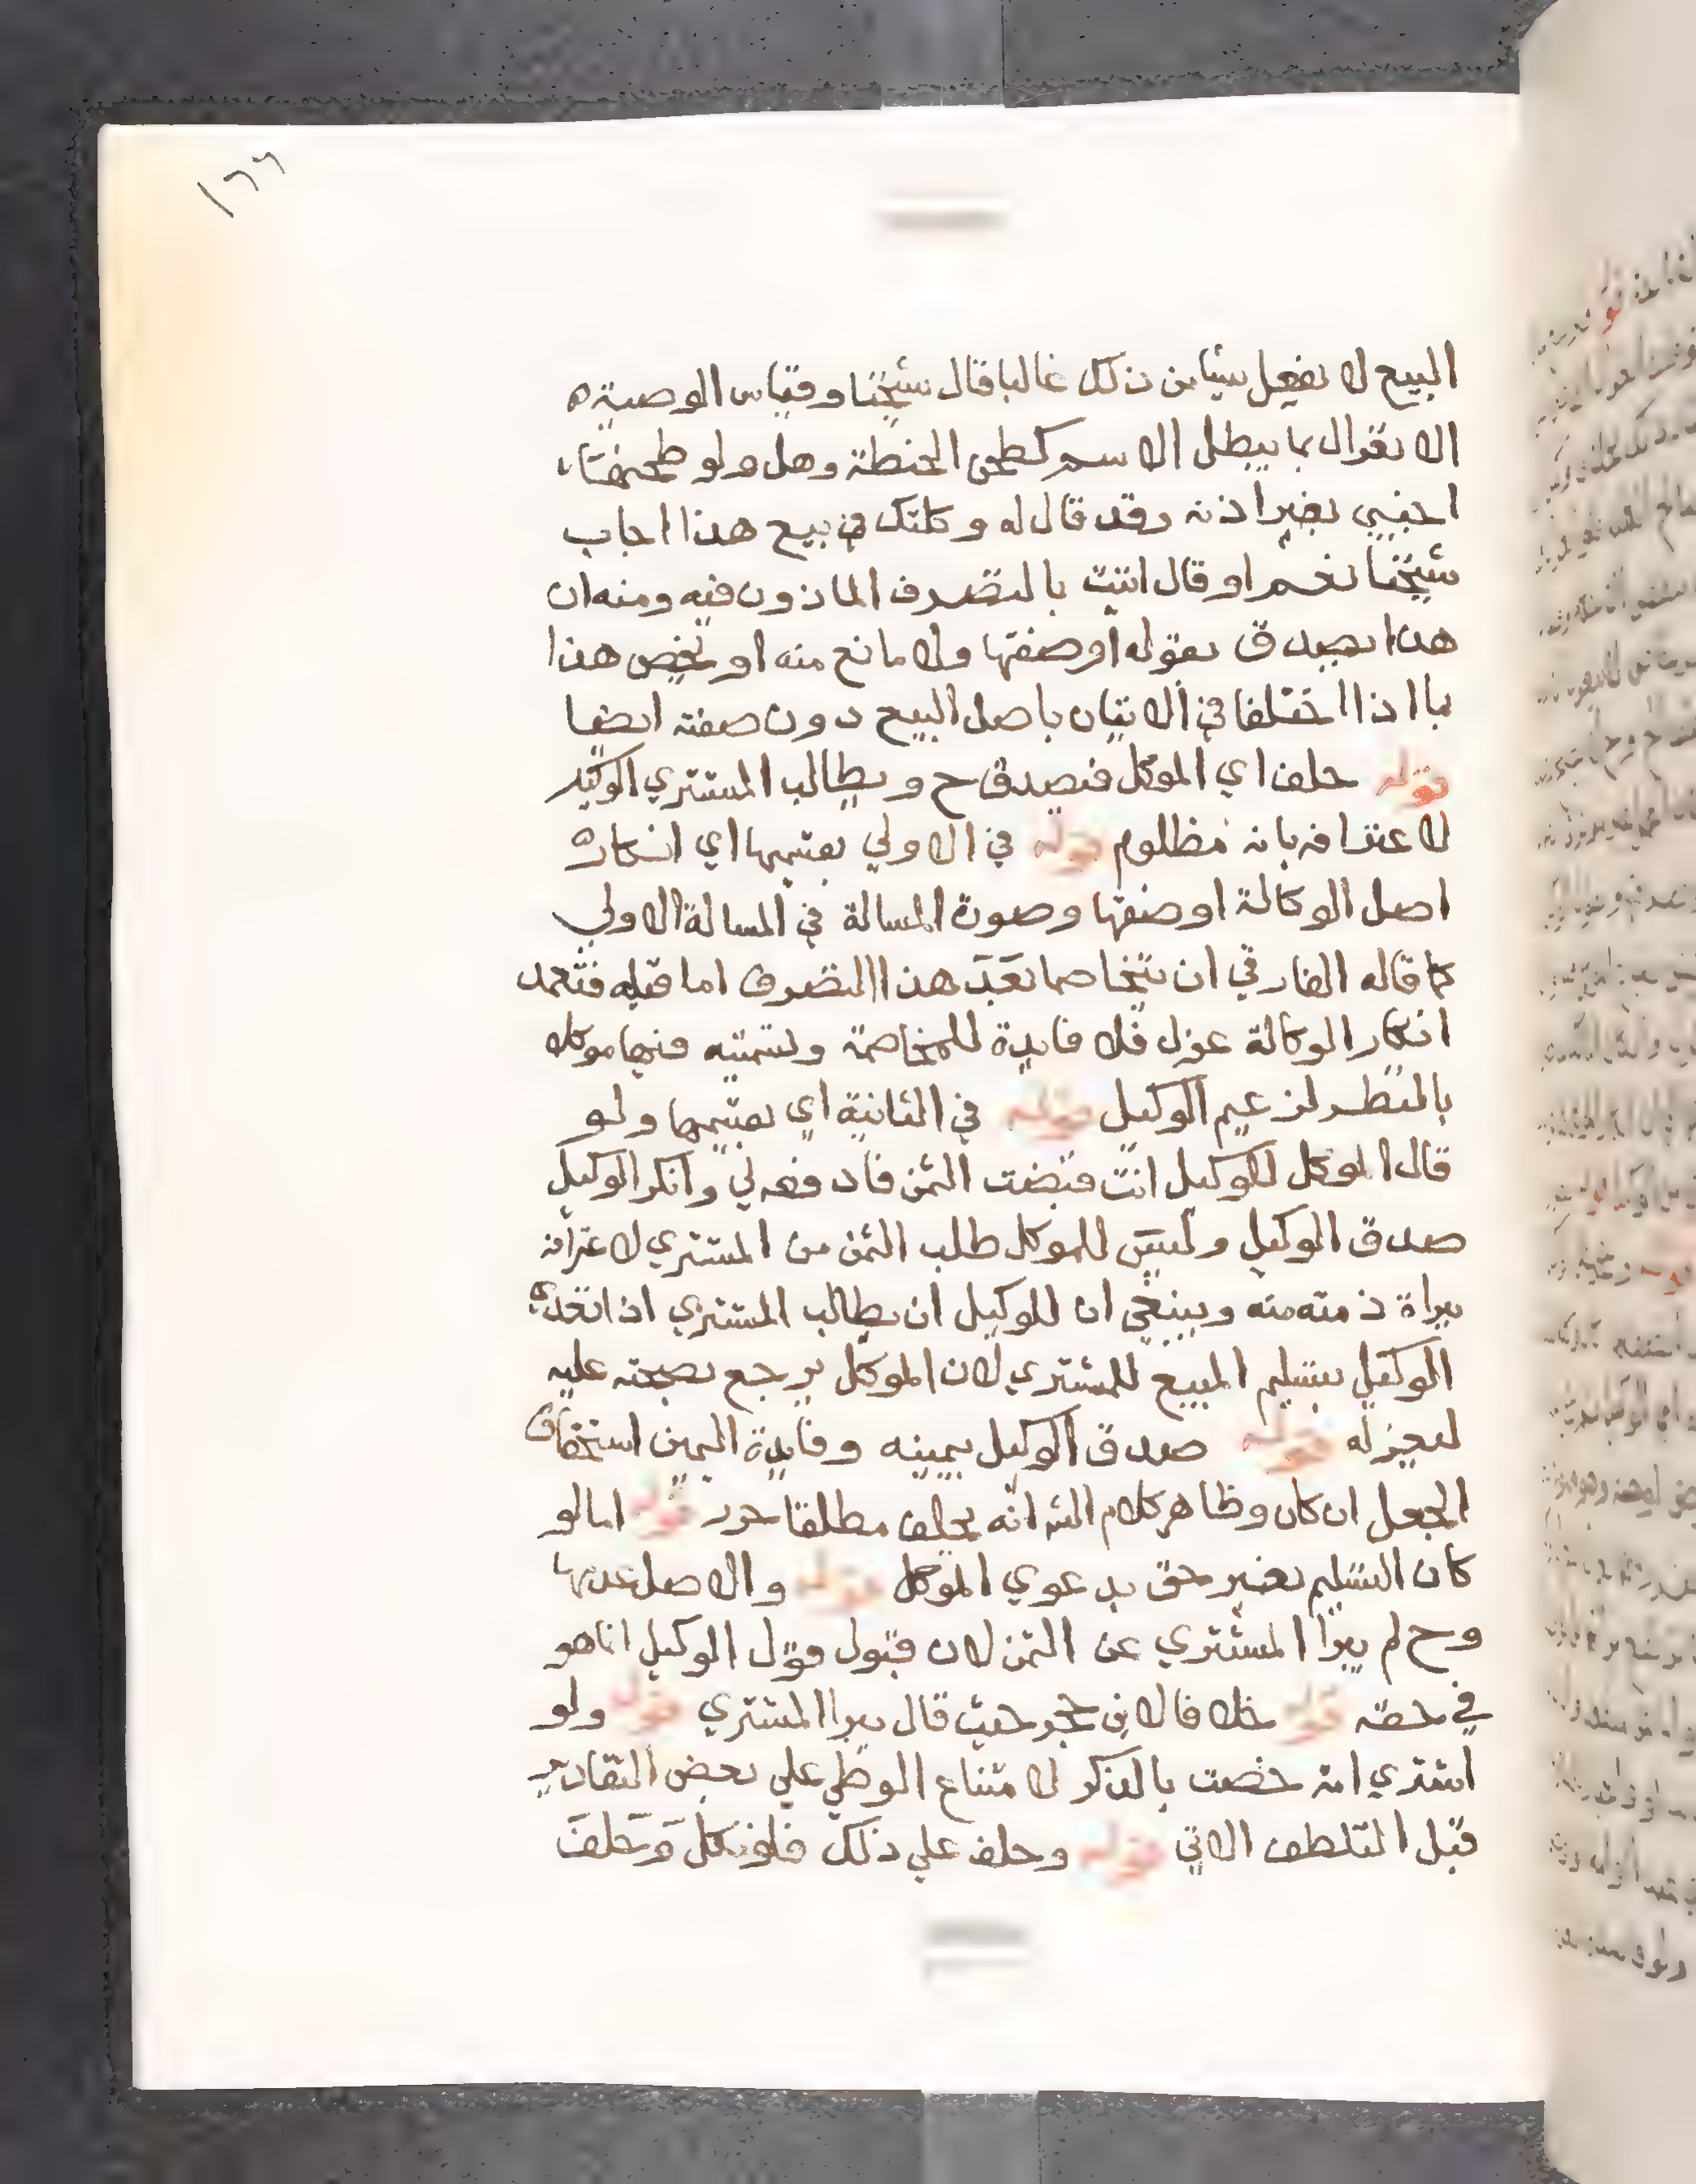 ١٦٦
البيع لا يفعل شيا من ذلك غالبا قال شيخنا وقياس الوصية ه
الانعزال بما يبطل الاسم كطحن الحنطة وهل ولو طحنها
اجنبي بغير اذنه وقد قال له وكلتك في بيع هذا اجاب
شيخنا نعم او قال اتيت بالتصرف الماذون فيه ومنه ان
هذا يصدق بقوله او صفتها ولا مانع منه او يخص هذا
بما اذا اختلفا في الاتيان باصل البيع دون صفته ايضا
قوله حلف اي الموكل فيصدق ح ويطالب المشتري الوكيل
لاعترافه بانه مظلوم قوله في الاولي بقسميها اي انكار
اصل الوكالة او صفتها وصورة المسالة في المسالة الاولي
كما قاله الفارقي ان يتخاصما بعد هذا التصرف اما قبله فتعمد
انكار الوكالة عزل فلا فايدة للمخاصمة وتسميته فيها موكلا
بالنظر لزعم الوكيل قوله في الثانية اي بقسميها ولو
قال الموكل للوكيل انت قبضت الثمن فادفعه لي وانكر الوكيل
صدق الوكيل وليس للموكل طلب الثمن من المشتري لاعترافه
ببراة ذمته منه وينبغي ان للوكيل ان يطالب المشتري اذا تعدي
الوكيل بتسليم المبيع للمشتري لان الموكل يرجع بقيمته عليه
لعجزله قوله صدق الوكيل بيمينه وفايدة اليمين استحقاق
الجعل ان كان وظاهر كلام الش انه يحلف مطلقا حرر قوله اما لو
كان التسليم بغير حق بدعوي الموكل قوله والاصل عدمها
وح لم يبرا المشتري عن الثمن لان قبول قول الوكيل انما هو
في حقه قوله خلافا لابن حجر حيث قال يبرا المشتري قوله ولو
اشتري امة خصت بالذكر لامتناع الوطي علي بعض التقادير
قبل التلطف الاتي قوله وحلف علي ذلك فلو نكل وحلف